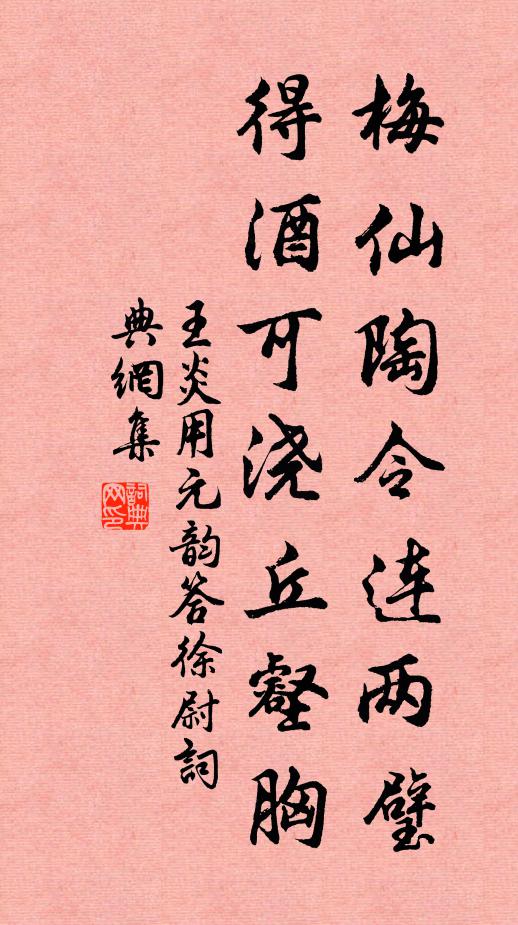 梅仙陶令连两璧
得酒可浇丘壑胸
王炎用元韵答徐尉词
典網集
詞典网印